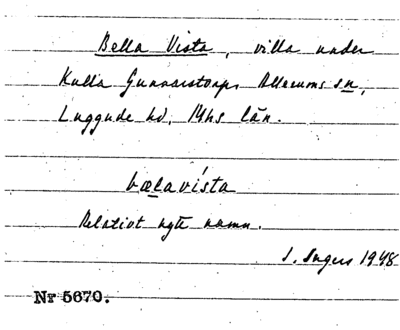 Bella Vista, villa under
Kulla Gunnarstorps Allerums sn,
Luggude hd, Mhs län.
bælavísta
Relativt nytt namn.
I. Ingers 1948
Nr 5670.